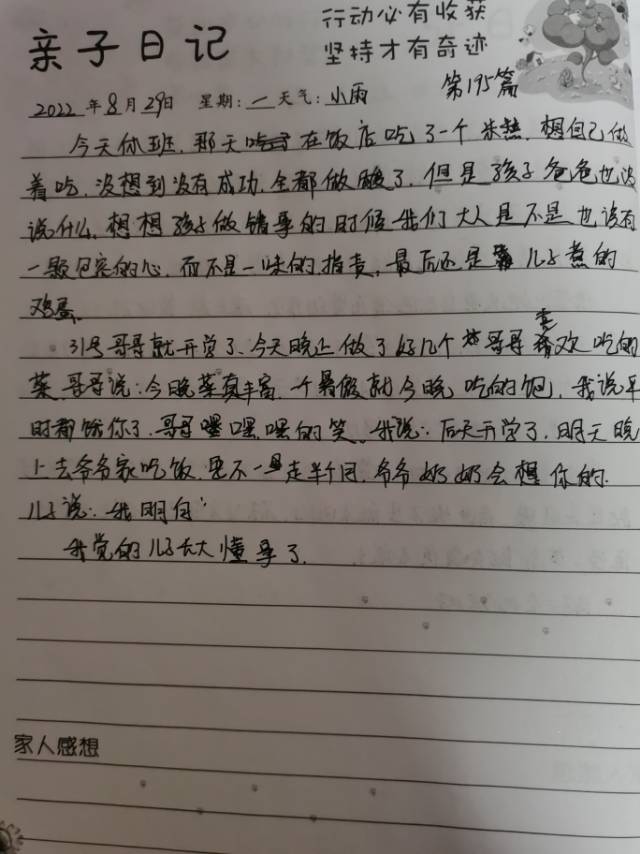 亲子日记
行动必有收获
坚持才有奇迹
第195篇
2022年8月29日 星期:一 天气:小雨
今天休班,那天在饭店吃了一个米糕,想自己做
着吃,没想到没有成功,全都做酸了,但是孩子爸爸也没
说什么,想想孩子做错事的时候我们大人是不是也该有
一颗包容的心,而不是一味的指责,最后还是儿子煮的
鸡蛋。
31号哥哥就开学了、今天晚上做了好几个哥哥喜欢吃的
菜,哥哥说:今晚菜真丰富,一个暑假就今晚吃的饱,我说平
时都饿你了,哥哥嘿嘿嘿的笑、我说:后天开学了,明天晚
上去爷爷家吃饭,要不一走半个月,爷爷奶奶会想你的.
儿子说:我明白
我觉的儿子长大懂事了.
家人感想